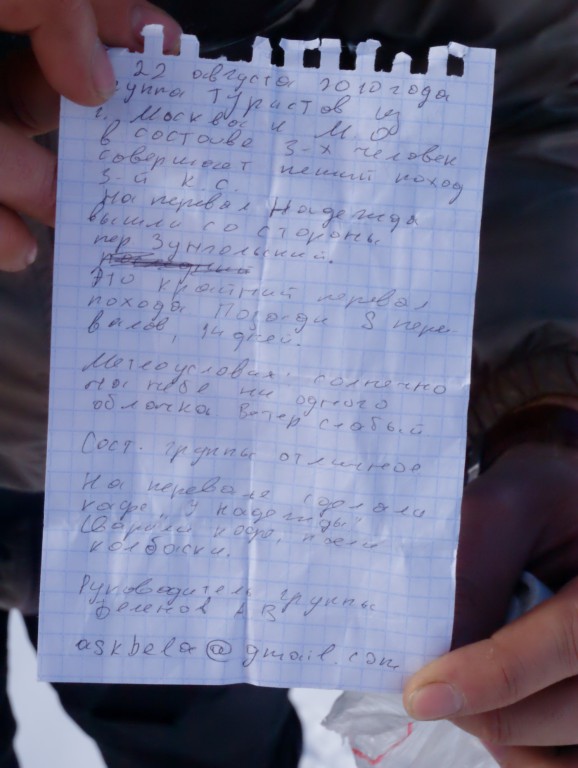 22 августа 2010 года
группа туристов из
г. Москва и М.О
в составе 3-х человек
совершает пеший поход
3-й к.с.
На перевал Надежда
вышли со стороны
пер. Зунгольский.
Это крайний перевал
похода Позади 8 пере
валов, 14 дней.
Метеоусловия: солнечно
на небе ни одного
облачка Ветер слабый
Сост. группы отличное
На перевале сделали
кафе „У надежды"
Сварили кофе,
колбаски.
Руководитель группы
Беленов А В
askbela@gmail.com